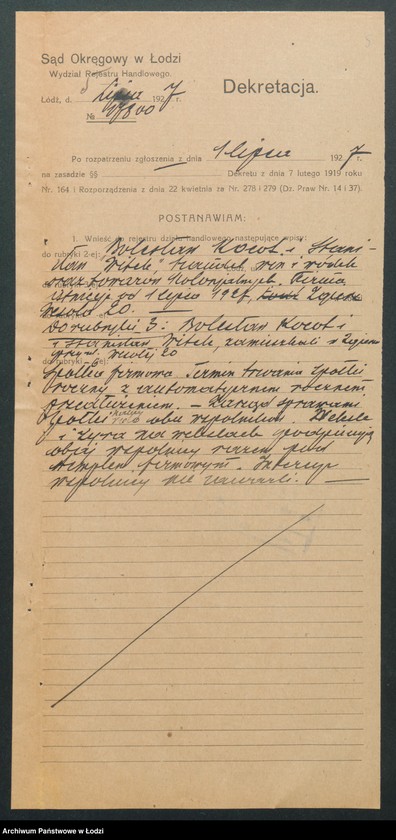 Sąd Okręgowy w Łodzi
Wydział Rejestru Handlowego.
Łódź, d. 5 Lipca 1927 r.
№ 17800
Dekretacja.
Po rozpatrzeniu zgłoszenia z dnia 1 lipca 1927 r.
na zasadzie §§ Dekretu z dnia 7 lutego 1919 roku
Nr. 164 i Rozporządzenia z dnia 22 kwietnia za Nr. 278 i 279 (Dz. Praw Nr. 14 i 37).
POSTANAWIAM:
1. Wnieść do rejestru działu handlowego następujące wpisy:
do rubryki 2-ej: Bolesław Kocot i Stani-
sław Witek, win i wódek
oraz towarów kolonjalnych. Firma
istnieje od 1 lipca 1927,
20. —
Do rubryki 3: Bolesław Kocot i
Stanisław Witek, zamieszkali w
20
Spółka firmowa. Termin trwania spółki
roczny z automatycznem rocznem
przedłużeniem. — Zarząd sprawami
spółki należy do obu wspólników. Weksle
i żyra na wekslach podpisują
obaj wspólnicy razem pod
stemplem firmowym. Intercyz
wspólnicy nie zawarli. —
Archiwum Państwowe w Łodzi